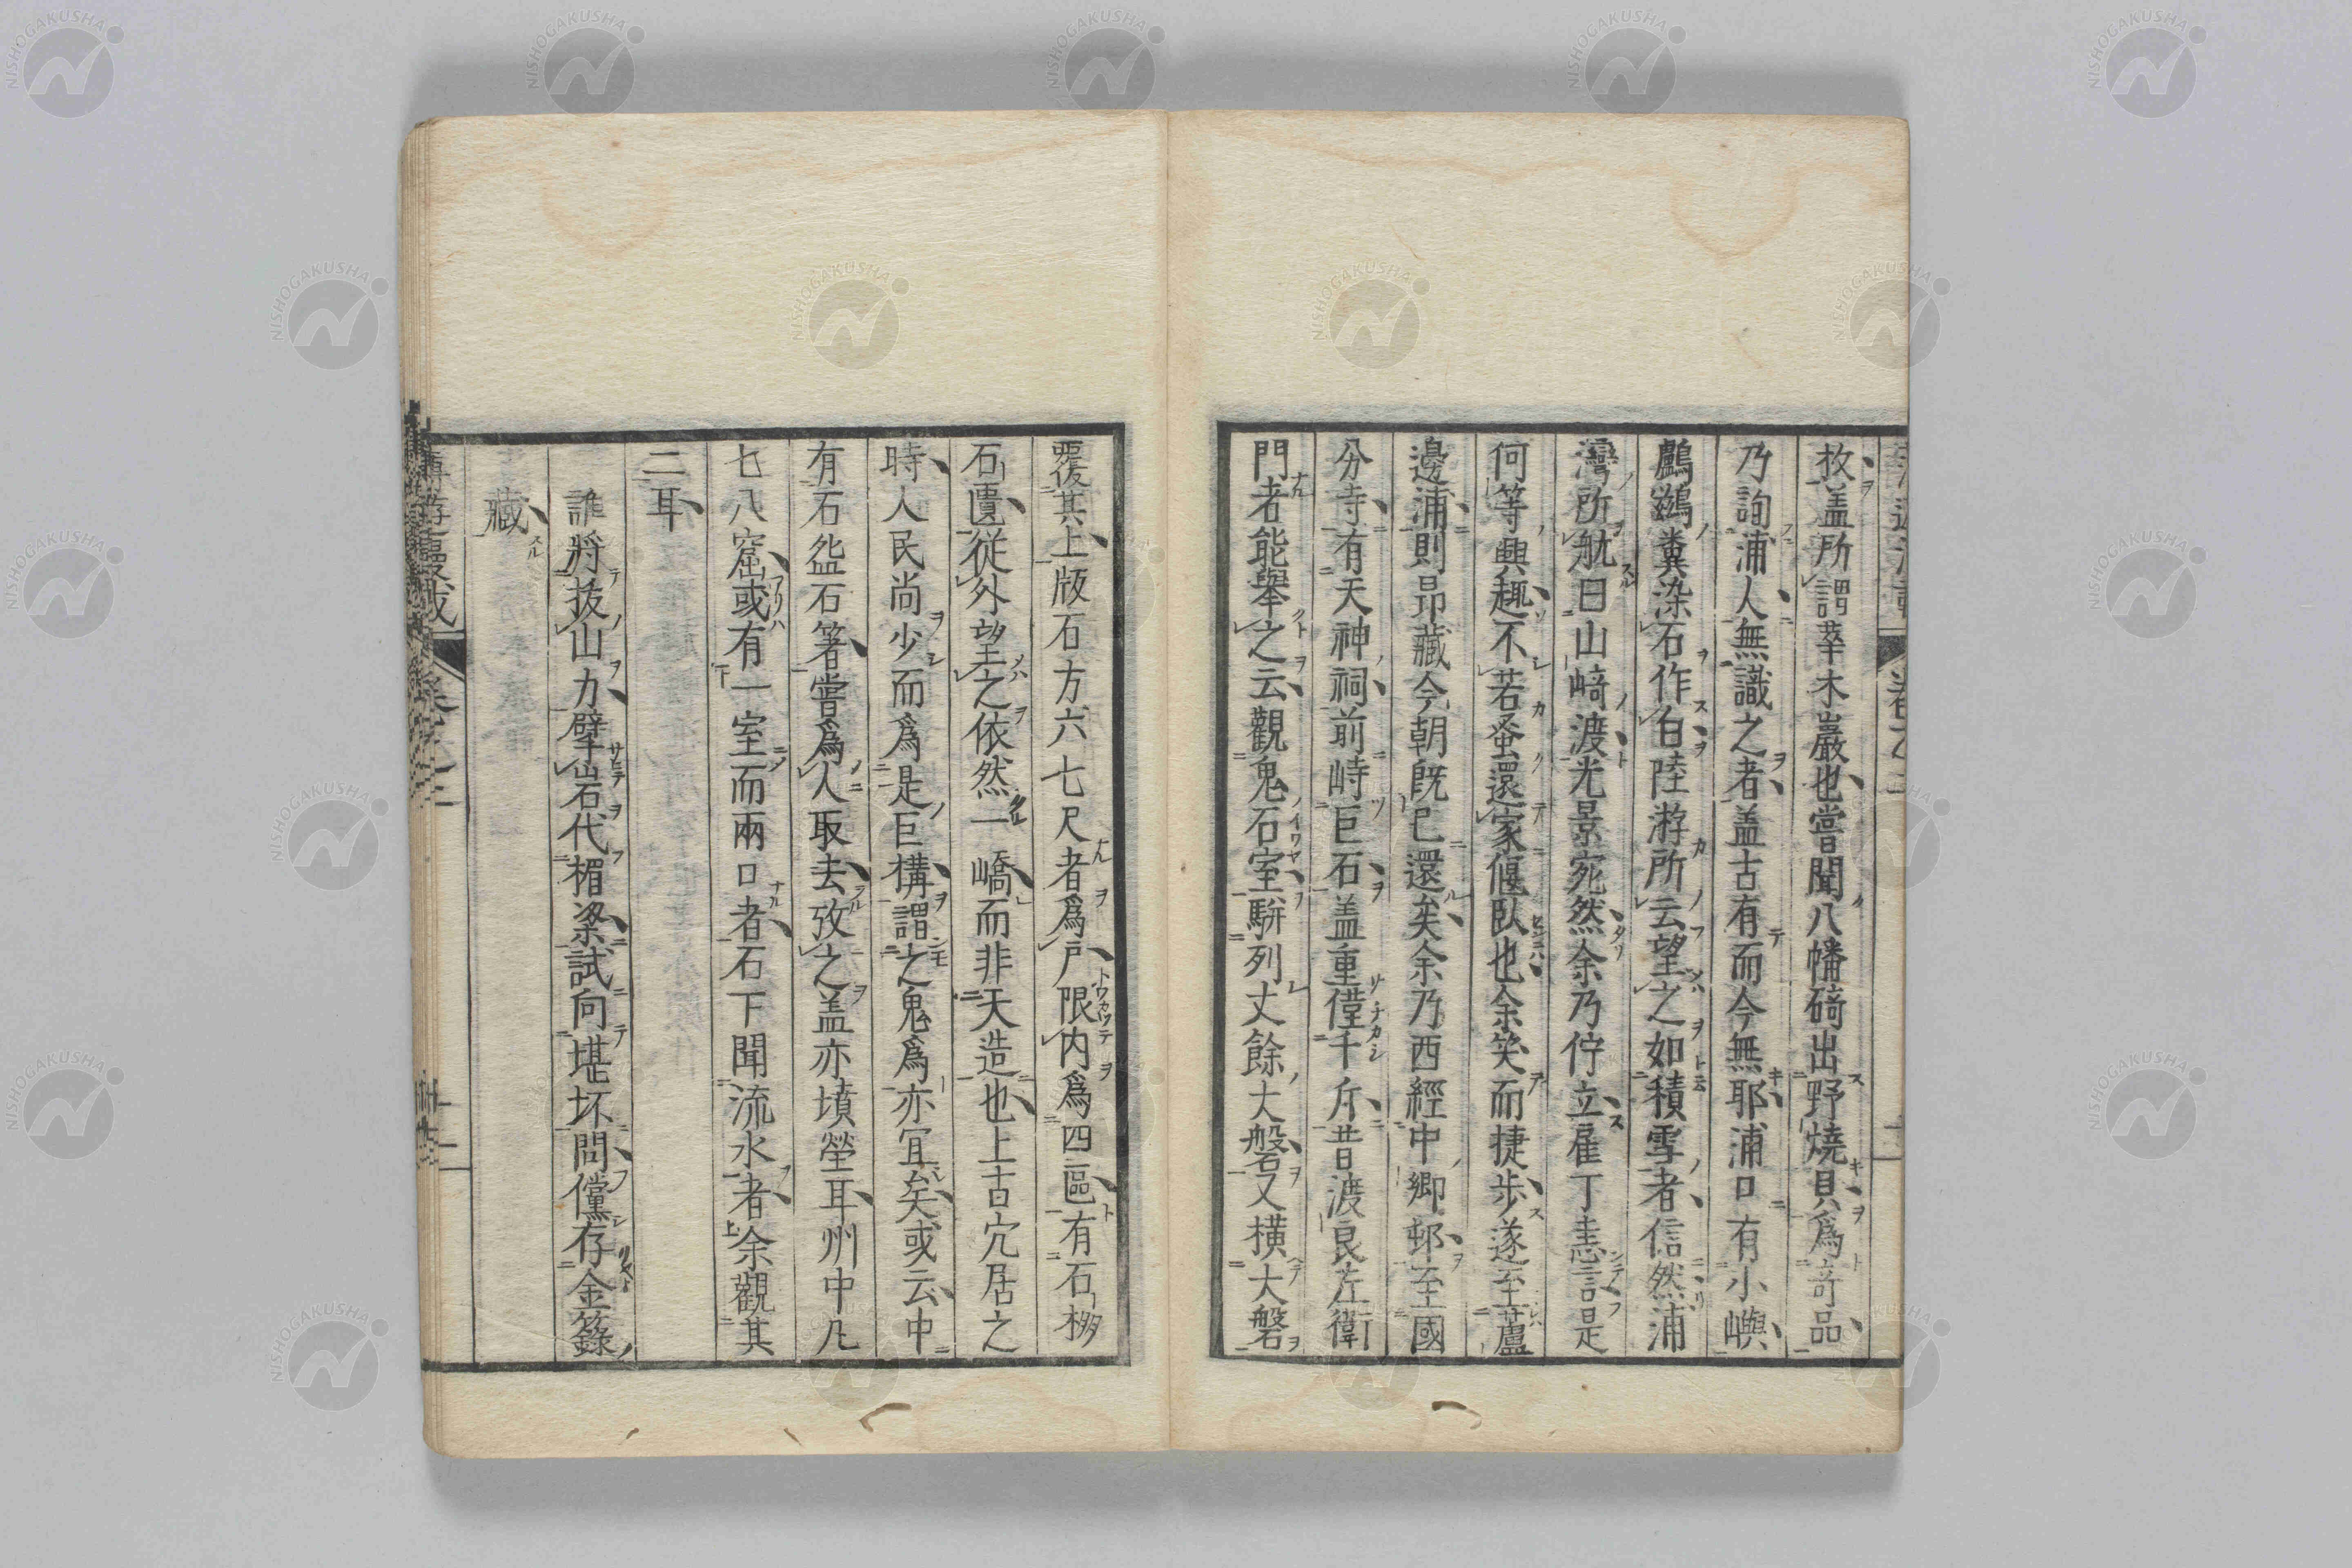 枚盖所謂莘木巖也嘗聞八幡碕出野燒貝爲竒品
乃詢浦人無識之者盖古有而今無耶浦口有小嶼
鸕鷀糞染石作白陸游所云望之如積雪者信然浦
灣所航曰山﨑渡光景宛然余乃佇立雇丁恚言是
何等興趣不若蚤還家偃臥也余笑而捷步遂至蘆
邊浦則昴藏今朝既已還矣余乃西經中鄉邨至國
分寺有天神祠前峙巨石盖重僅千斤昔渡良左衛
門者能舉之云觀鬼石室駢列丈餘大磐又橫大磐
覆其上版石方六七尺者爲戶限内爲四區有石
石匱從外望之依然一嶠而非天造也上古穴居之
時人民尚少而爲是巨構謂之鬼爲亦宜矣或云中
有石盌石箸嘗爲人取去攷之盖亦墳塋耳州中凡
七八窟或有一室而兩口者石下聞流水者余觀其
二耳
誰將拔山力擘岩代楣梁試向堪坏問儻存金籙
藏
NISHOGAKUSHA